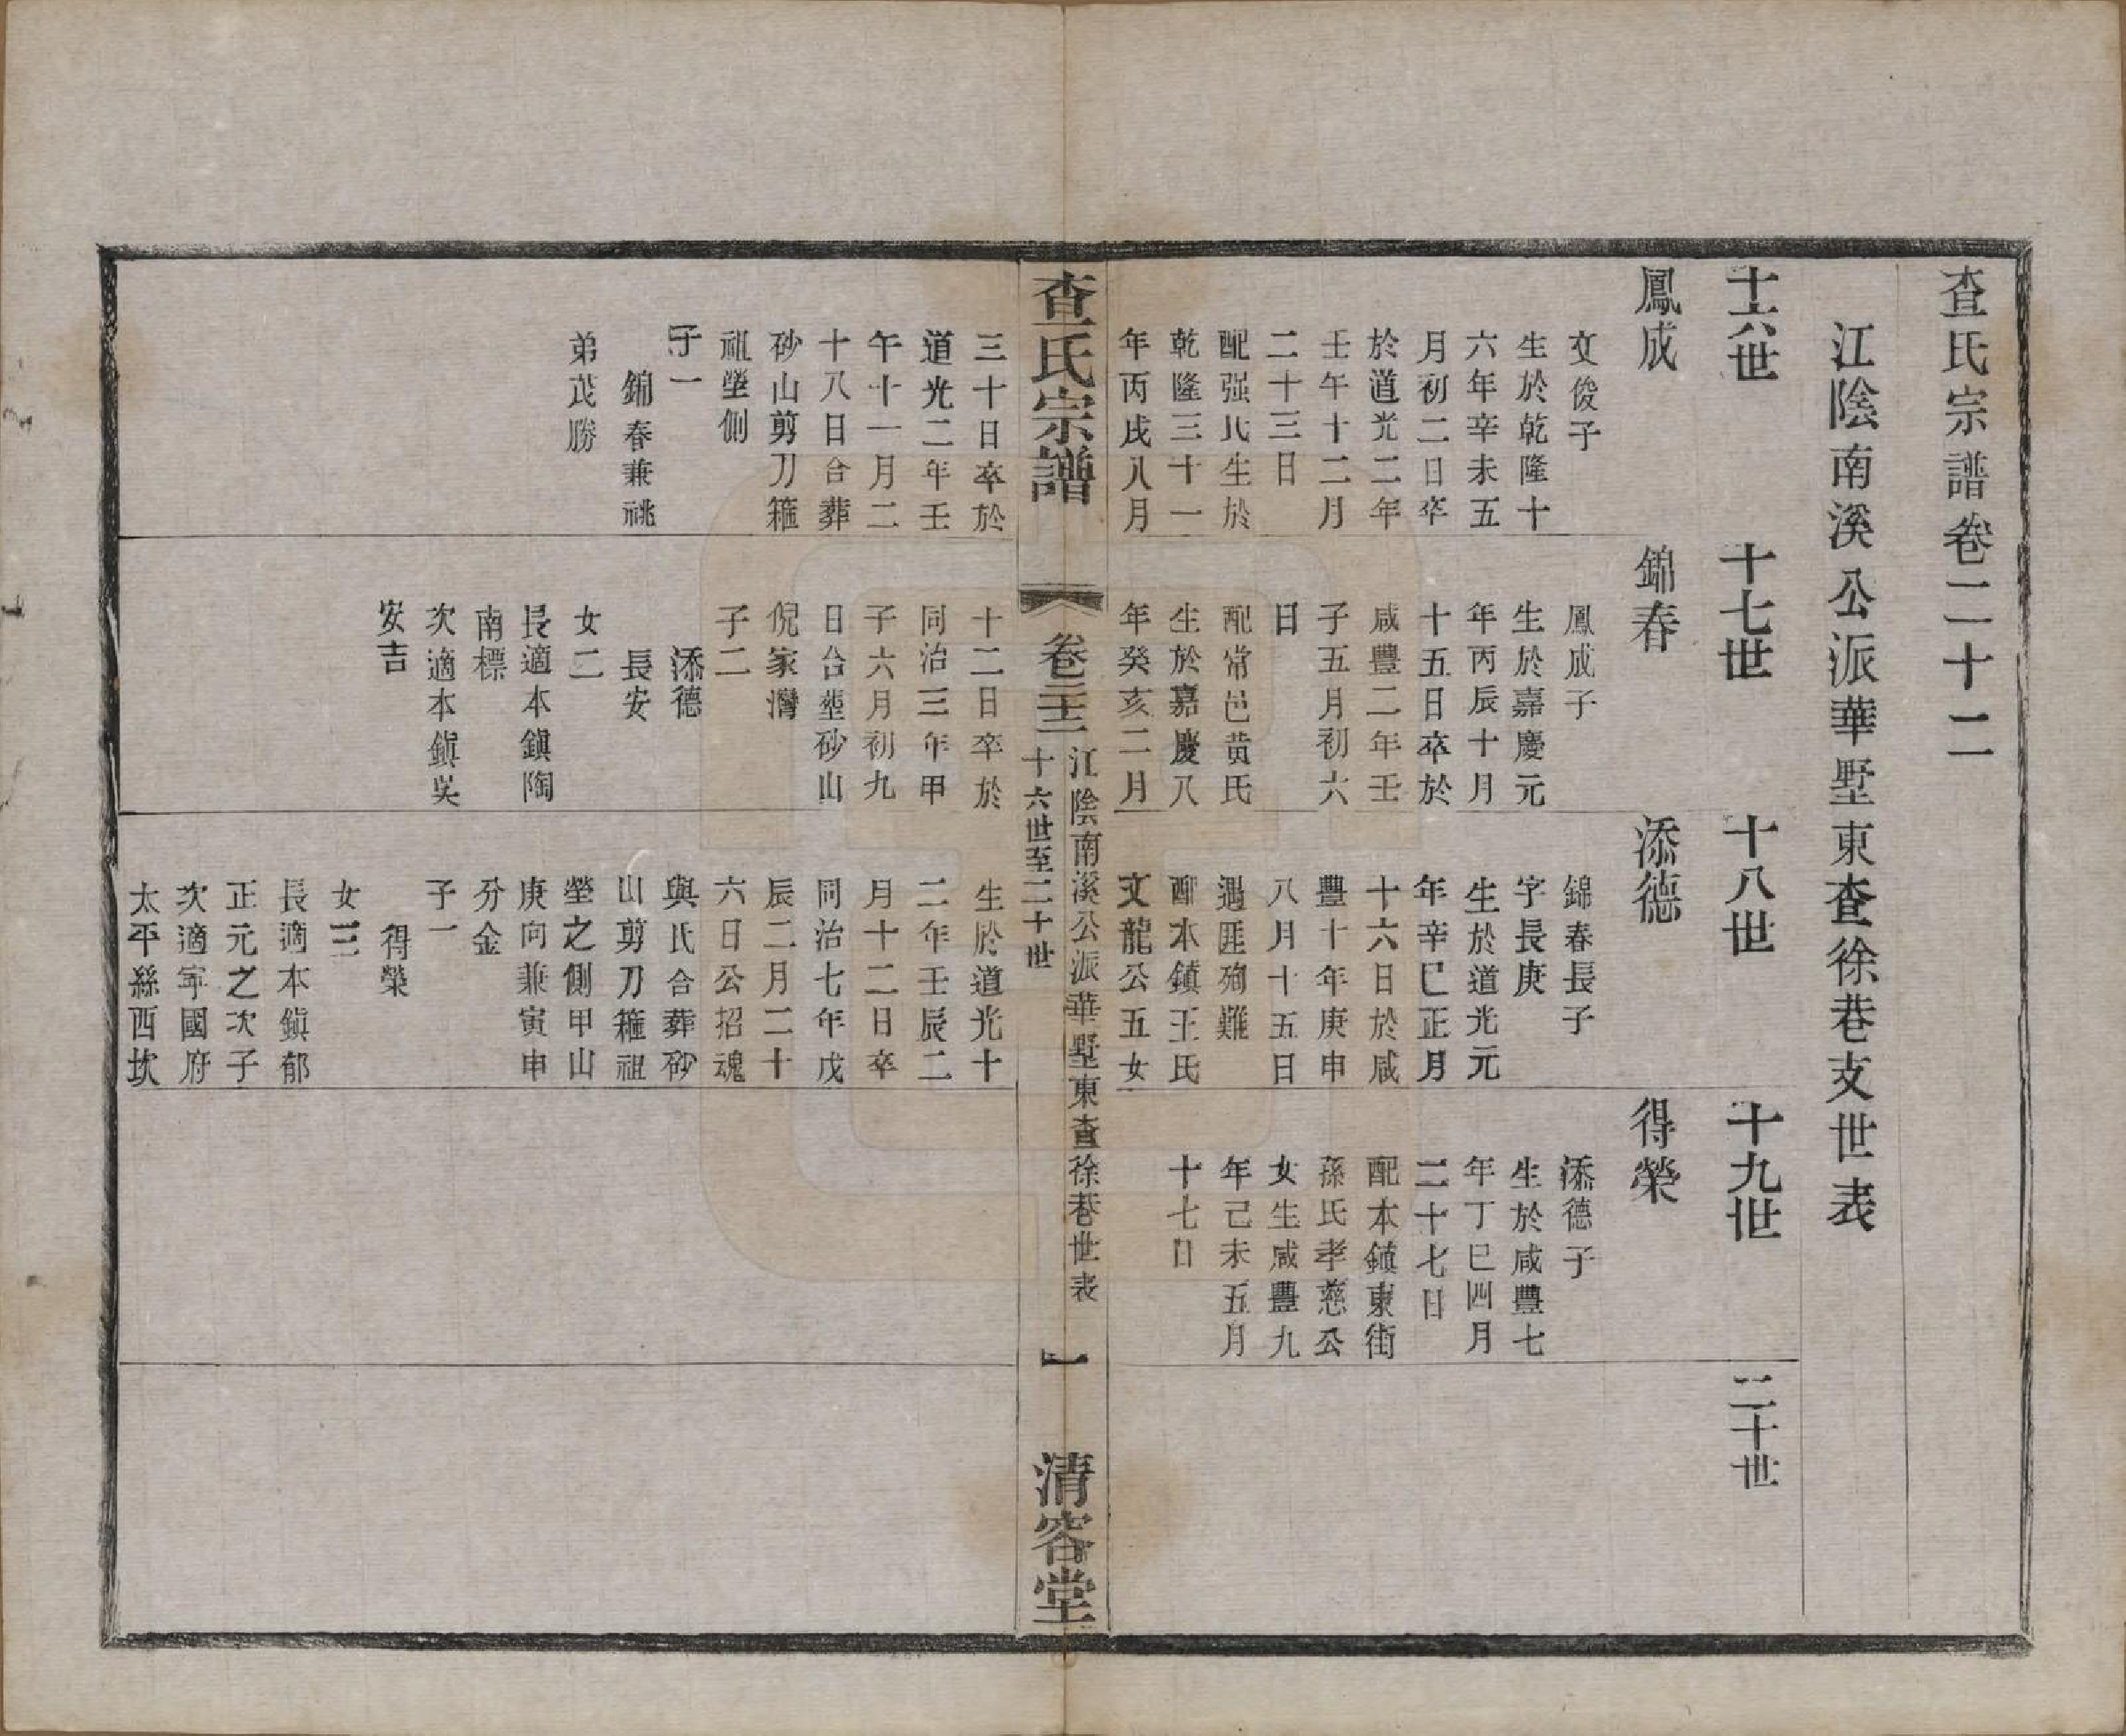 查氏宗譜卷二十二
江陰南溪公派華墅東查徐巷支世表
十六世
十七世
十八世
十九世
二十世
鳳成
文俊子
生於乾隆十
六年辛未五
月初二日卒
於道光二年
壬午十二月
二十三日
配强氏生於
乾隆三十一
年丙戌八月
三十日卒於
道光二年壬
午十一月二
十八日合葬
砂山剪刀箍
祖塋側
子一
錦春兼祧
弟茂勝
錦春
鳳成子
生於嘉慶元
年丙辰十月
十五日卒於
咸豐二年壬
子五月初六
日
配常邑黄氏
生於嘉慶八
年癸亥二月
十二日卒於
同治三年甲
子六月初九
日合塟砂山
倪家灣
子二
添德
長安
女二
長適本鎭陶
南標
次適本鎭吳
安吉
添德
錦春長子
字長庚
生於道光元
年辛巳正月
十六日於咸
豐十年庚申
八月十五日
遇匪殉難
配本鎮王氏
文龍公五女
生於道光十
二年壬辰二
月十二日卒
同治七年戊
辰二月二十
六日公招魂
與氏合葬砂
山剪刀箍祖
塋之側甲山
庚向兼寅申
分金
子一
得榮
女三
長適本鎭郁
正元之次子
次適寜國府
太平縣西坎
得榮
添德子
生於咸豐七
年丁巳四月
二十七日
配本鎮東街
孫氏孝慈公
女生咸豐九
年己未五月
十七日
查氏宗譜
卷二十二
江陰南溪公派華墅東查徐巷世表
十六世至二十世
一
清容堂